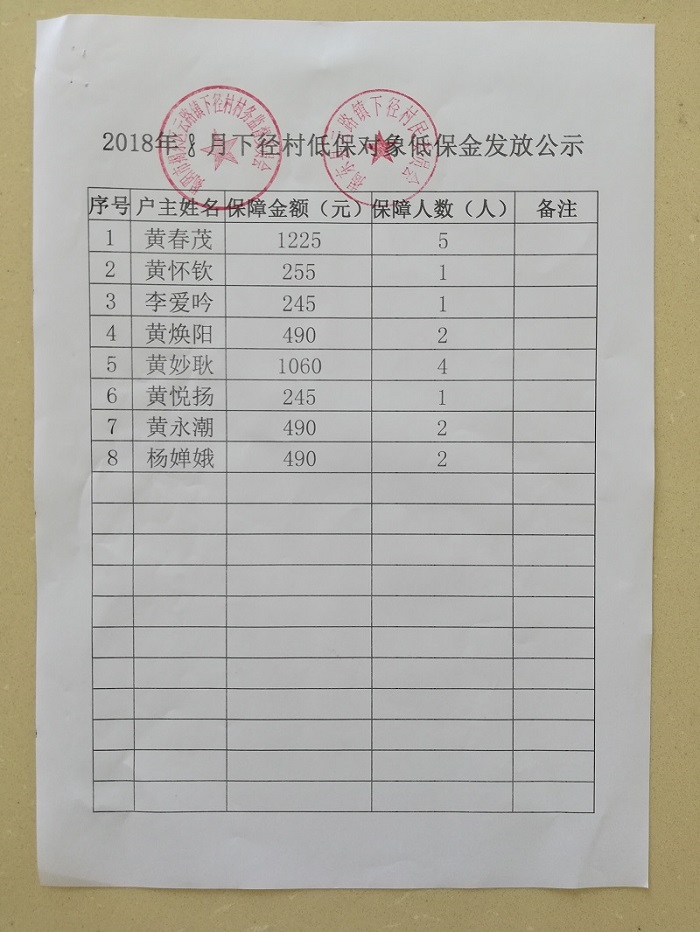 2018年8月下径村低保对象低保金发放公示
序号 户主姓名 保障金额（元） 保障人数（人） 备注
1 黄春茂 1225 5
2 黄怀钦 255 1
3 李爱吟 245 1
4 黄焕阳 490 2
5 黄妙耿 1060 4
6 黄悦扬 245 1
7 黄永潮 490 2
8 杨婵娥 490 2
云路镇下径村村务监督委员会
云路镇下径村民委员会